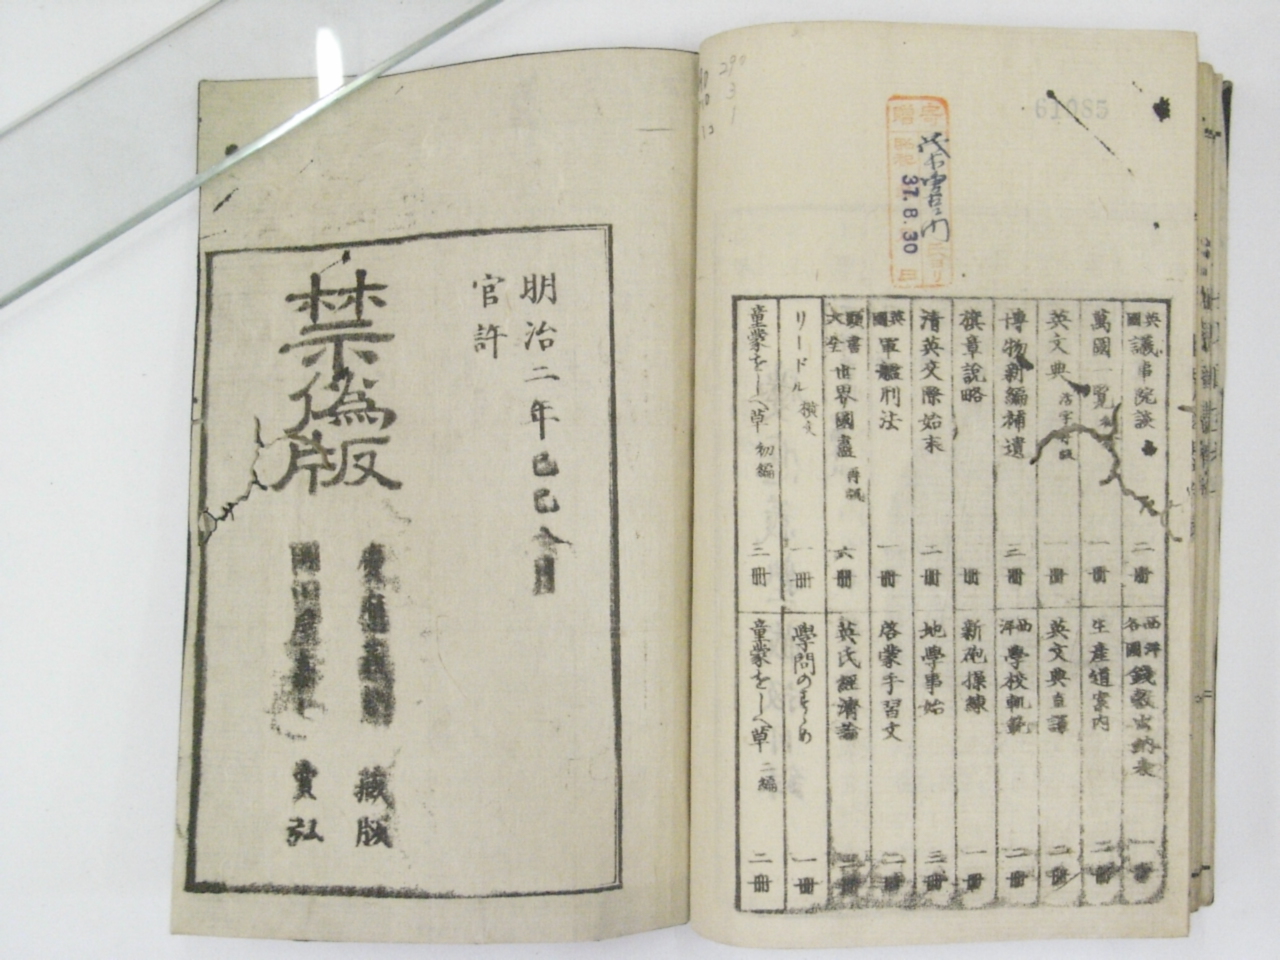 寄贈
昭和
37.8.30
61085
290
3
1
英國議事院談 二冊
萬國一覽 一冊
英文典 一冊
博物新編補遺 三冊
旗章說略 一冊
清英交際始末 二冊
英國軍艦刑法 一冊
頭書大全世界國盡 再版 六冊
リードル 横文 一冊
童蒙をしへ草 初編 三冊
西洋各國錢穀出納表 一冊
生産道案内 二冊
英文典直譯 二冊
西洋學校軌範 二冊
新砲操練 一冊
地學事始 三冊
啓蒙手習文 二冊
英氏經濟論
學問のすゝめ 一冊
童蒙をしへ草 二編 二冊
明治二年己巳
官許
藏版
賣弘
禁偽版